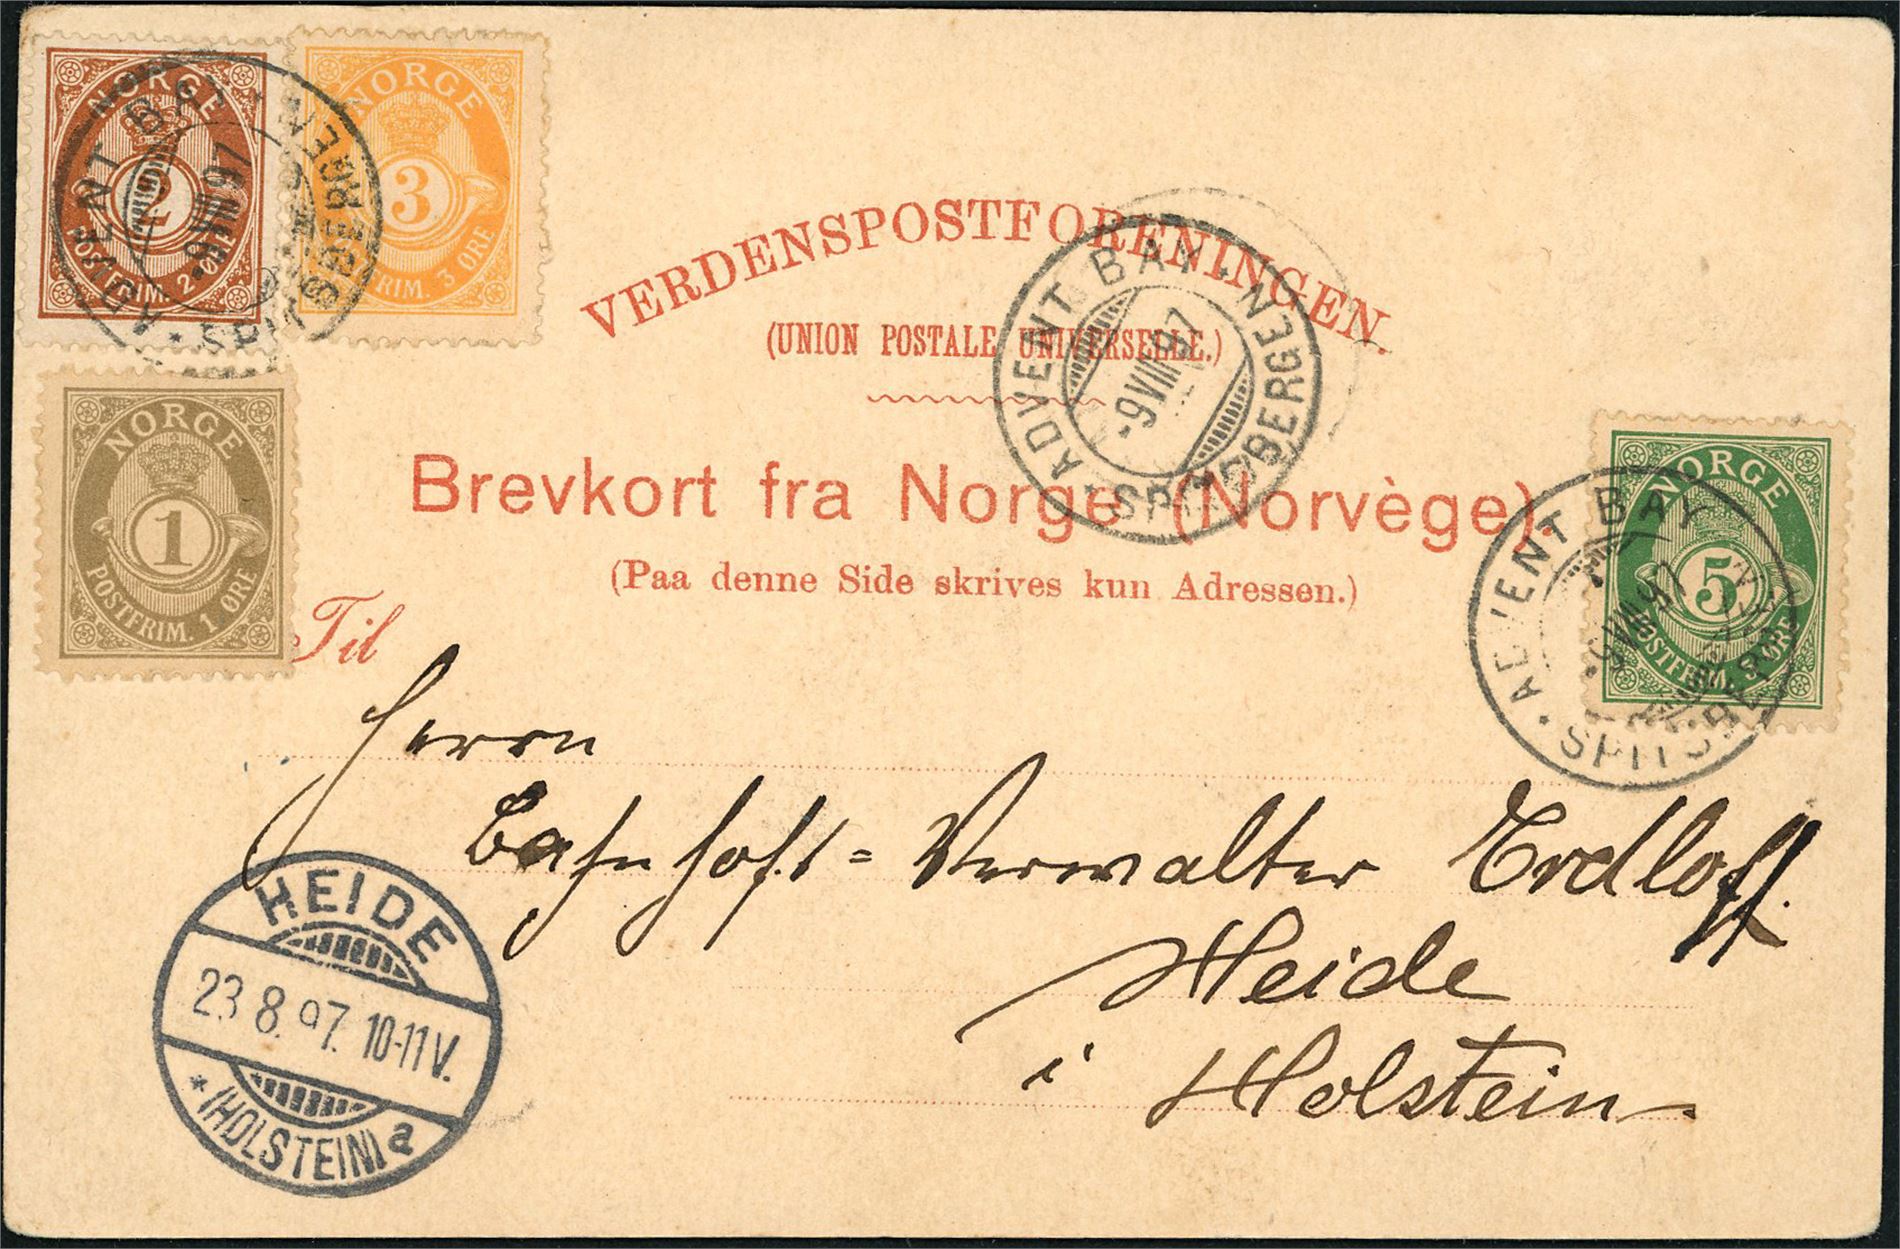 NORGE
2
POSTFRIM. 2 ØRE
NORGE
3
POSTFRIM. 3 ØRE
ADVENT BAY
SPITSBERGEN
-9 VIII 97
NORGE
1
POSTFRIM. 1 ØRE
VERDENSPOSTFORENINGEN.
(UNION POSTALE UNIVERSELLE.)
ADVENT BAY · SPITSBERGEN
-9 VIII 97
Brevkort fra Norge (Norvège).
(Paa denne Side skrives kun Adressen.)
NORGE
5
POSTFRIM. 5 ØRE
ADVENT BAY
SPITSBERGEN
-9 VIII 97
Til
Herrn
Bahnhofs=Verwalter Erdloff.
Heide
i Holstein
HEIDE
23 8. 97. 10-11 V.
* (HOLSTEIN) a